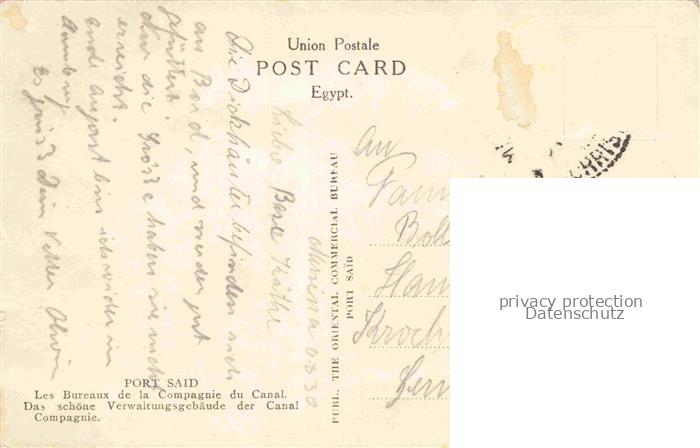 Union Postale
POST CARD
Egypt.
Messina 6830
Liebe Base Käthe
Die Dickhäuter befinden sich
an Bord, und werden gut
gefüttert.
die Grösse haben sie nicht
erreicht.
ende August bin ich wieder in
Hamburg
Es grüsst Dein Vetter
An
Fam
Boll
Ham
Kroch
Ger
PUBL. THE ORIENTAL COMMERCIAL BUREAU
PORT SAÏD
privacy protection
Datenschutz
PORT SAID
Les Bureaux de la Compagnie du Canal.
Das schöne Verwaltungsgebäude der Canal
Compagnie.